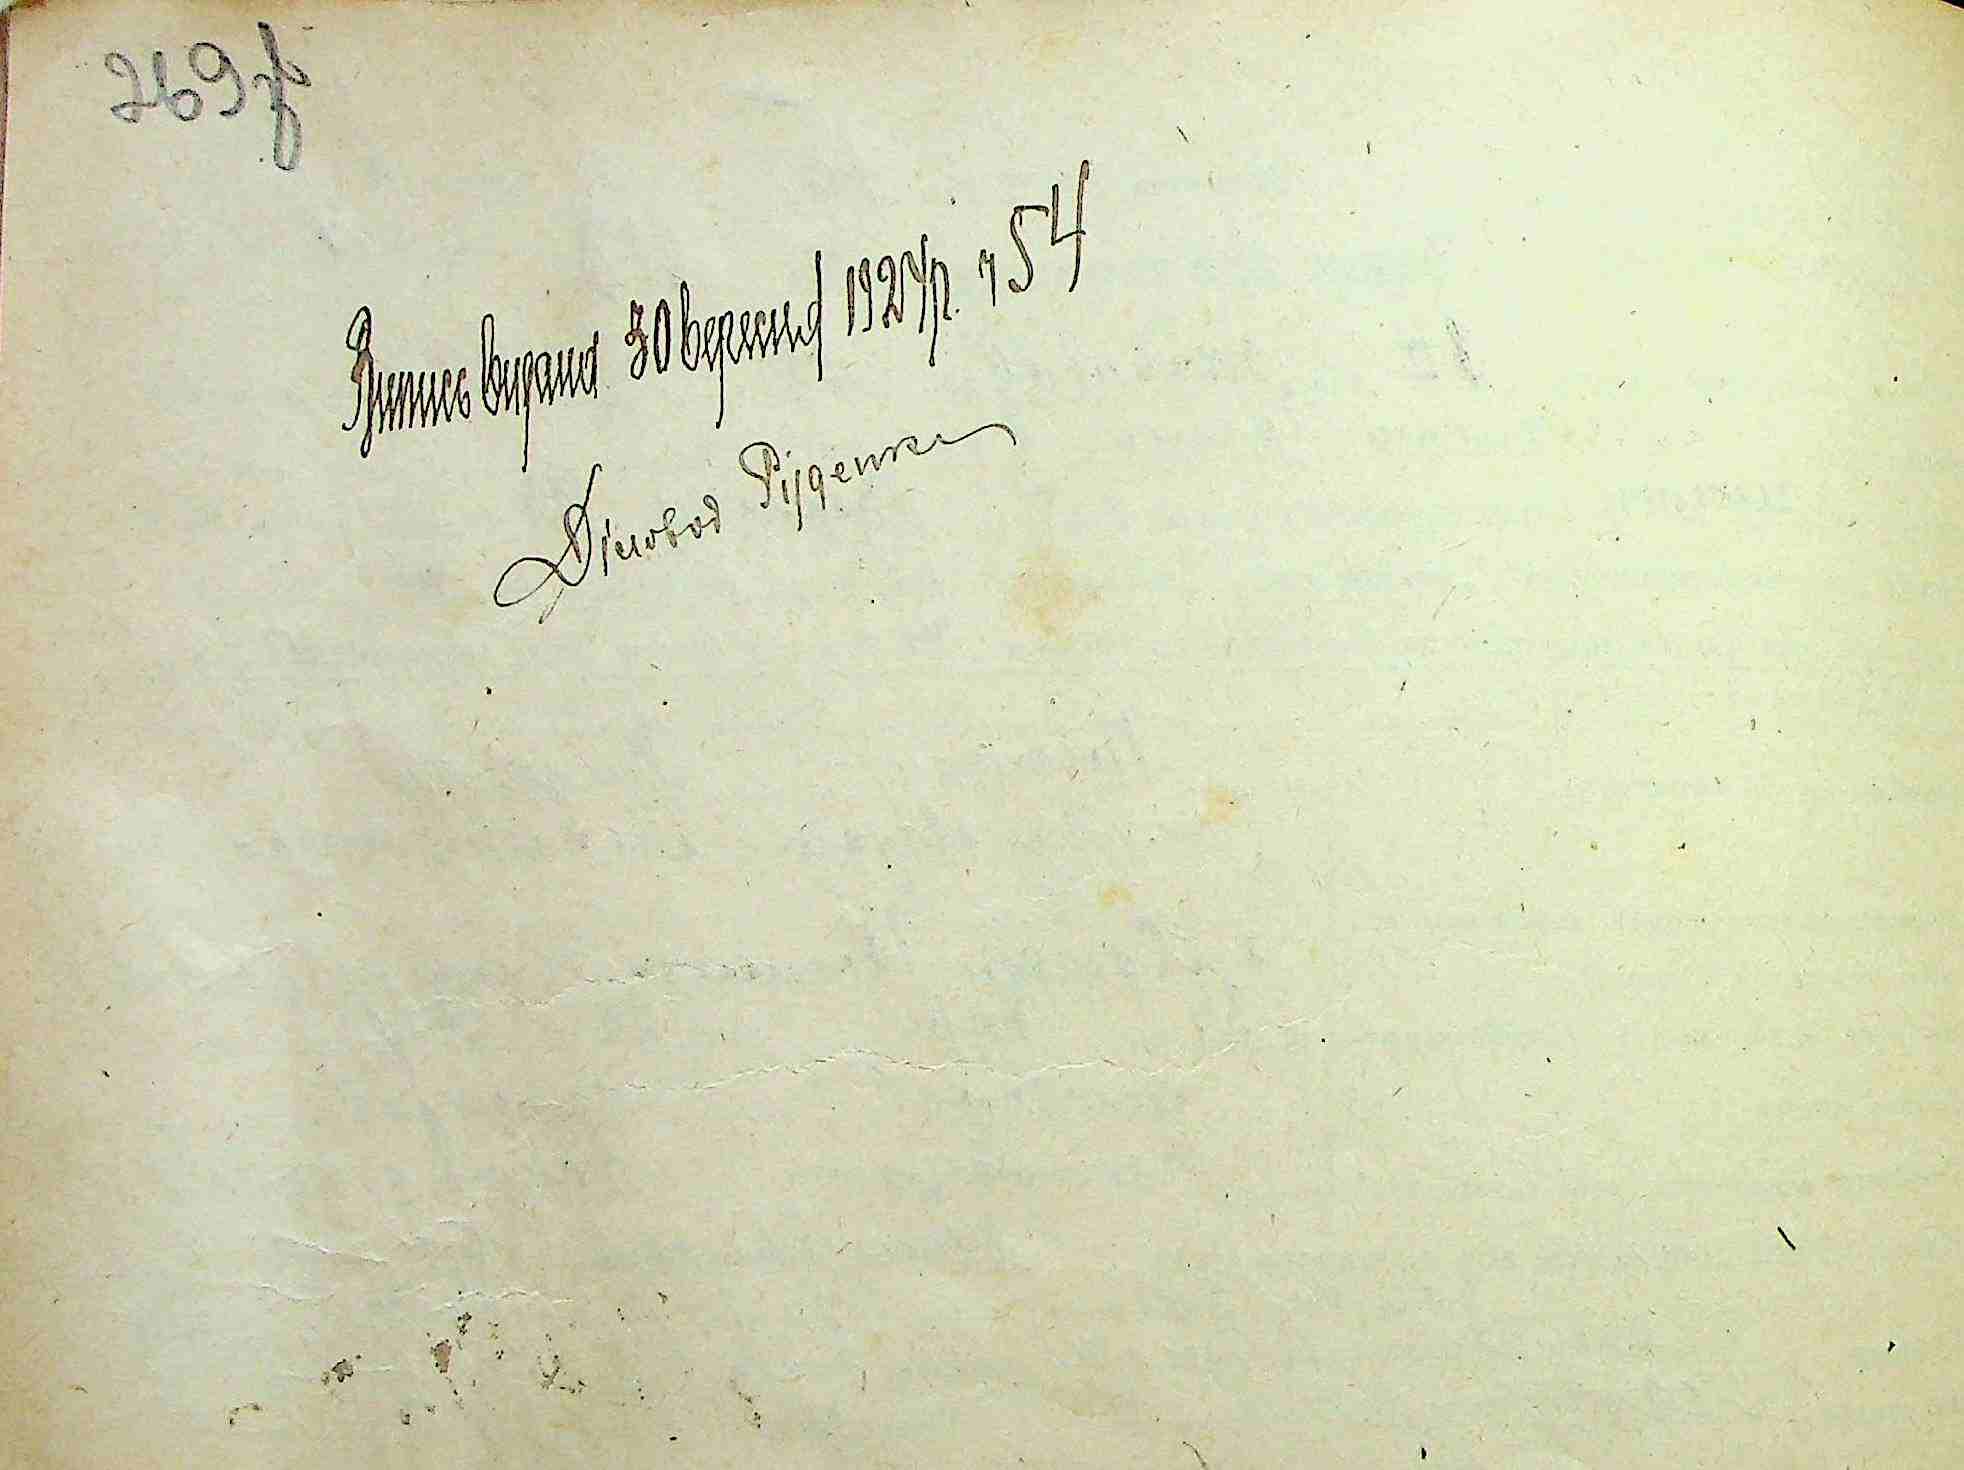 269
Випись видана 30 вересня 192 р. ч 54
Діловод Руденко